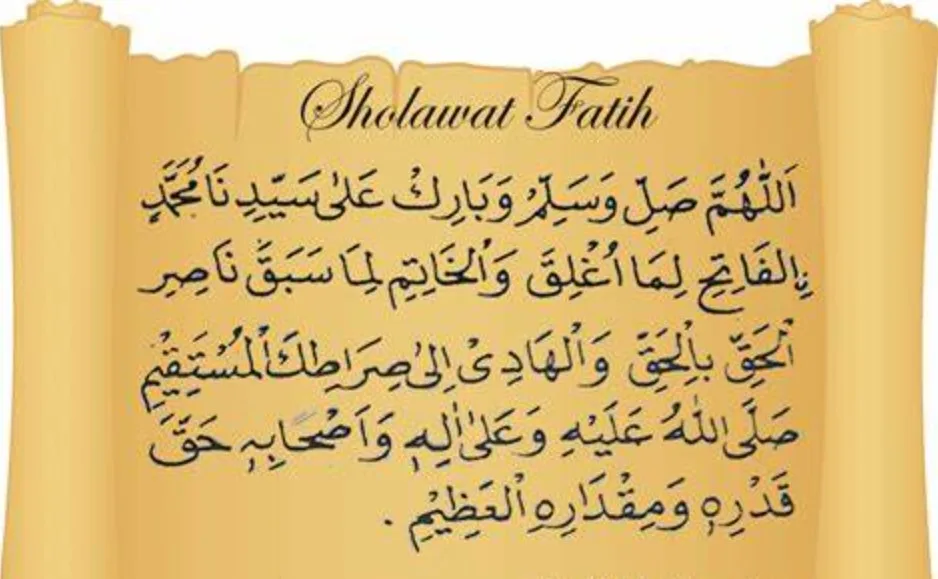 Sholawat Fatih
اَللّٰهُمَّ صَلِّ وَسَلِّمْ وَبَارِكْ عَلٰى سَيِّدِنَا مُحَمَّدٍ
نِالفَاتِحِ لِمَا اُغْلِقَ وَالْخَاتِمِ لِمَا سَبَقَ نَاصِرِ
الْحَقِّ بِالْحَقِّ وَالْهَادِىْ اِلٰى صِرَاطِكَ الْمُسْتَقِيْمِ
صَلَّى اللّٰهُ عَلَيْهِ وَعَلٰى اٰلِهٖ وَاَصْحَابِهٖ حَقَّ
قَدْرِهٖ وَمِقْدَارِهِ الْعَظِيْمِ .